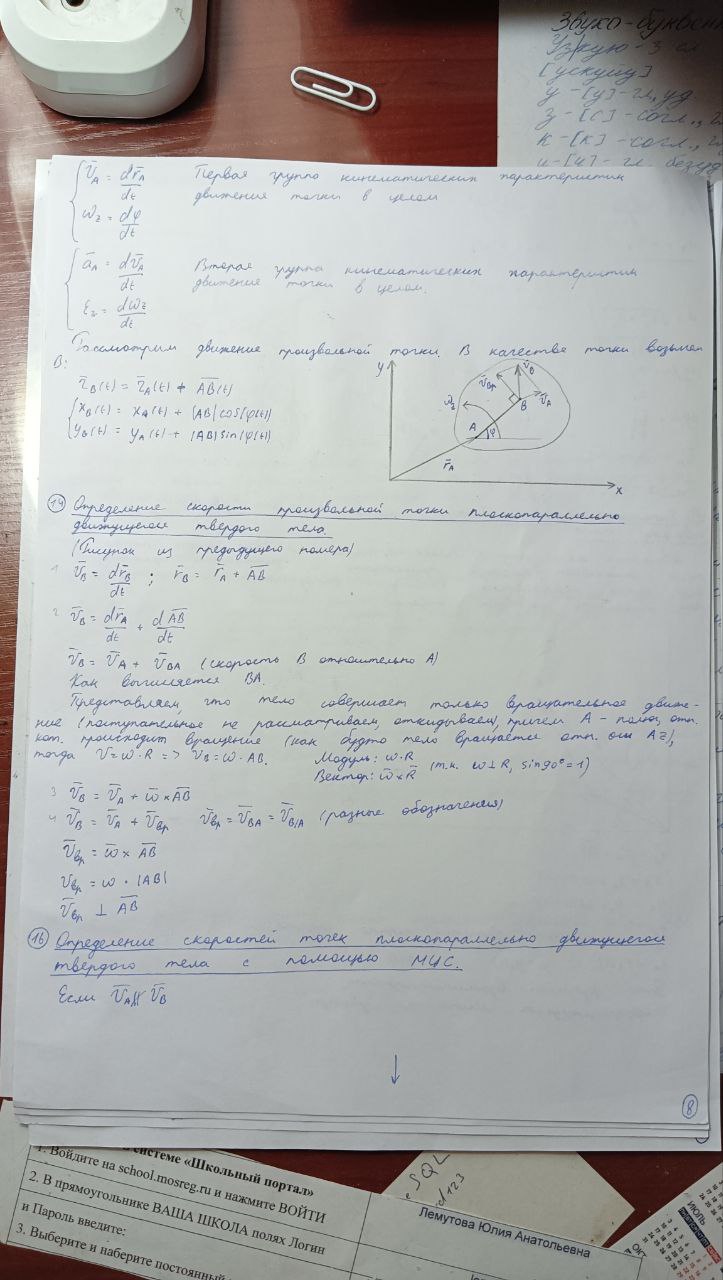 Звуко-буквен
Узкую-3 сл
[ускуйу]
у-[у]-гл., уд.
з-[с]-согл.,
к-[к]-согл.,
и-[и]-гл. безуд
V̄_A = dr̄_A/dt Первая группа кинематических характеристик
ω_z = dφ/dt движения точки в целом
ā_A = dV̄_A/dt Вторая группа кинематических характеристик
ε_z = dω_z/dt движение точки в целом.
Рассмотрим движение произвольной точки. В качестве точки возьмем
B:
r̄_B(t) = r̄_A(t) + A̅B̅(t)
x_B(t) = x_A(t) + |AB| cos(φ(t))
y_B(t) = y_A(t) + |AB| sin(φ(t))
y
V̄_B
V̄_BA
V̄_A
B
A
φ
r̄_A
x
14 Определение скорости произвольной точки плоскопараллельно
движущегося твердого тела.
(Рисунок из предыдущего номера)
1 V̄_B = dr̄_B/dt ; r̄_B = r̄_A + A̅B̅
2 V̄_B = dr̄_A/dt + dA̅B̅/dt
V̄_B = V̄_A + V̄_BA (скорость B относительно A)
Как вычисляется BA.
Представляем, что тело совершает только вращательное движе-
ние (поступательное не рассматриваем, откидываем), причем A - полюс, отн.
кот. происходит вращение (как будто тело вращается отн. оси Az),
тогда V = ω·R => V_B = ω·AB. Модуль: ω·R
Вектор: ω̄×R̄ (т.к. ω⊥R, sin90°=1)
3 V̄_B = V̄_A + ω̄×A̅B̅
4 V̄_B = V̄_A + V̄_вр V̄_вр = V̄_BA = V̄_B/A (разные обозначения)
V̄_вр = ω̄×A̅B̅
V_вр = ω·|AB|
V̄_вр ⊥ A̅B̅
16 Определение скоростей точек плоскопараллельно движущегося
твердого тела с помощью МЦС.
Если V̄_A ∦ V̄_B
↓
8
системе «Школьный портал»
1. Войдите на school.mosreg.ru и нажмите ВОЙТИ
2. В прямоугольнике ВАША ШКОЛА полях Логин
и Пароль введите:
3. Выберите и наберите постоянный
SQL
d123
Лемутова Юлия Анатольевна
ИЮЛЬ